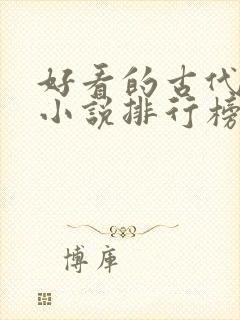 好看的古代
小说排行榜
博库